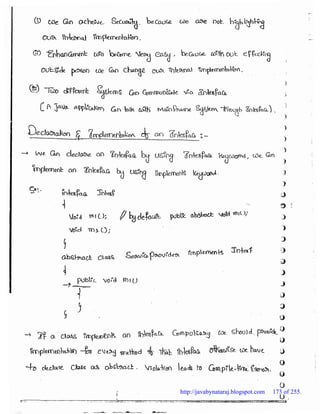 ① We Can achieve Security, because we are not highlighting
our Internal Implementation.
② Enhancement will become very easy, because without effecting
outside person we can change our Internal Implementation.
Two different Systems Can Communicate via Interface
(A Java Application Can talk with Mainframe System through Interface).
Declaration & Implementation of an Interface :-
→ We Can declare an Interface by using Interface keyword, we Can
implement an Interface by using implements keyword.
Eg:- interface Interf
{
void m1(); // by default public abstract void m1();
void m2();
}
abstract class ServiceProvider implements Interf
{
→ public void m1()
{
}
}
→ If a class implements an Interface Compulsory we should provide
implementation for every method of that Interface otherwise we have
to declare class as abstract. Violation leads to Compile-time Error.
http://javabynataraj.blogspot.com 173 of 255.